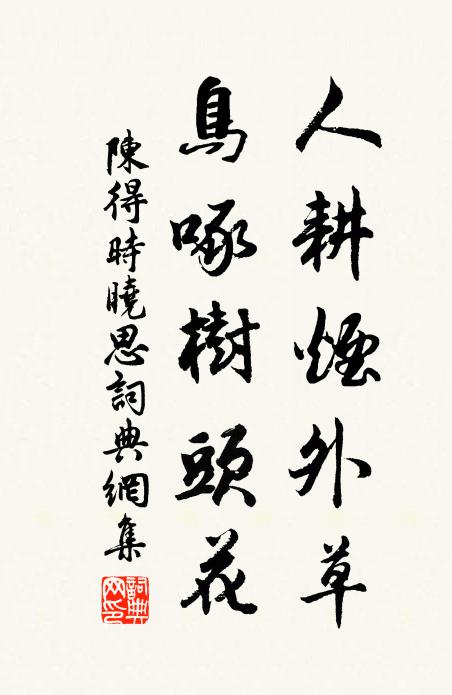 人耕煙外草
鳥啄樹頭花
陳得時曉思詞典網集
詞典網印